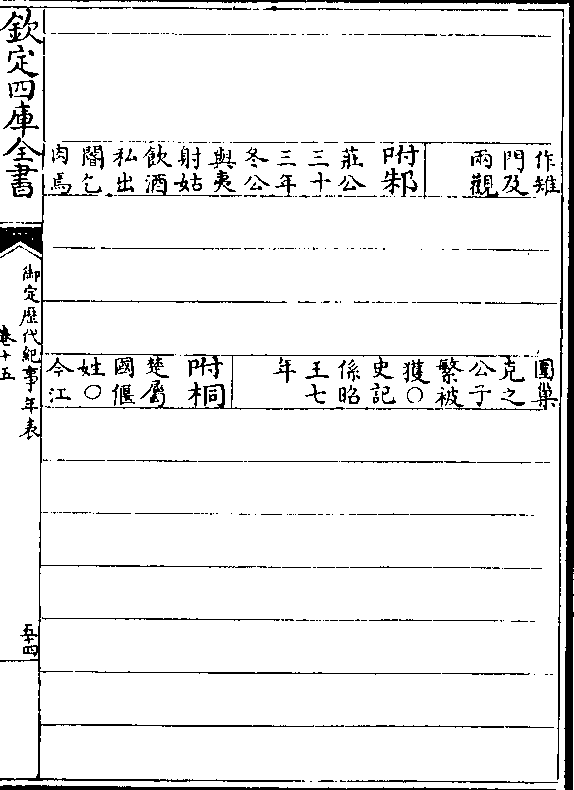 作雉
門及
兩觀
附邾
莊公
三十
三年
冬公
與夷
射姑
飲酒
私出
閽乞
肉焉
圍巢
克之
公子
繁被
獲○
史記
係昭
王七
年
附桐
楚屬
國偃
姓○
今江
欽定四庫全書
御定歷代紀事年表
卷十五
五十四